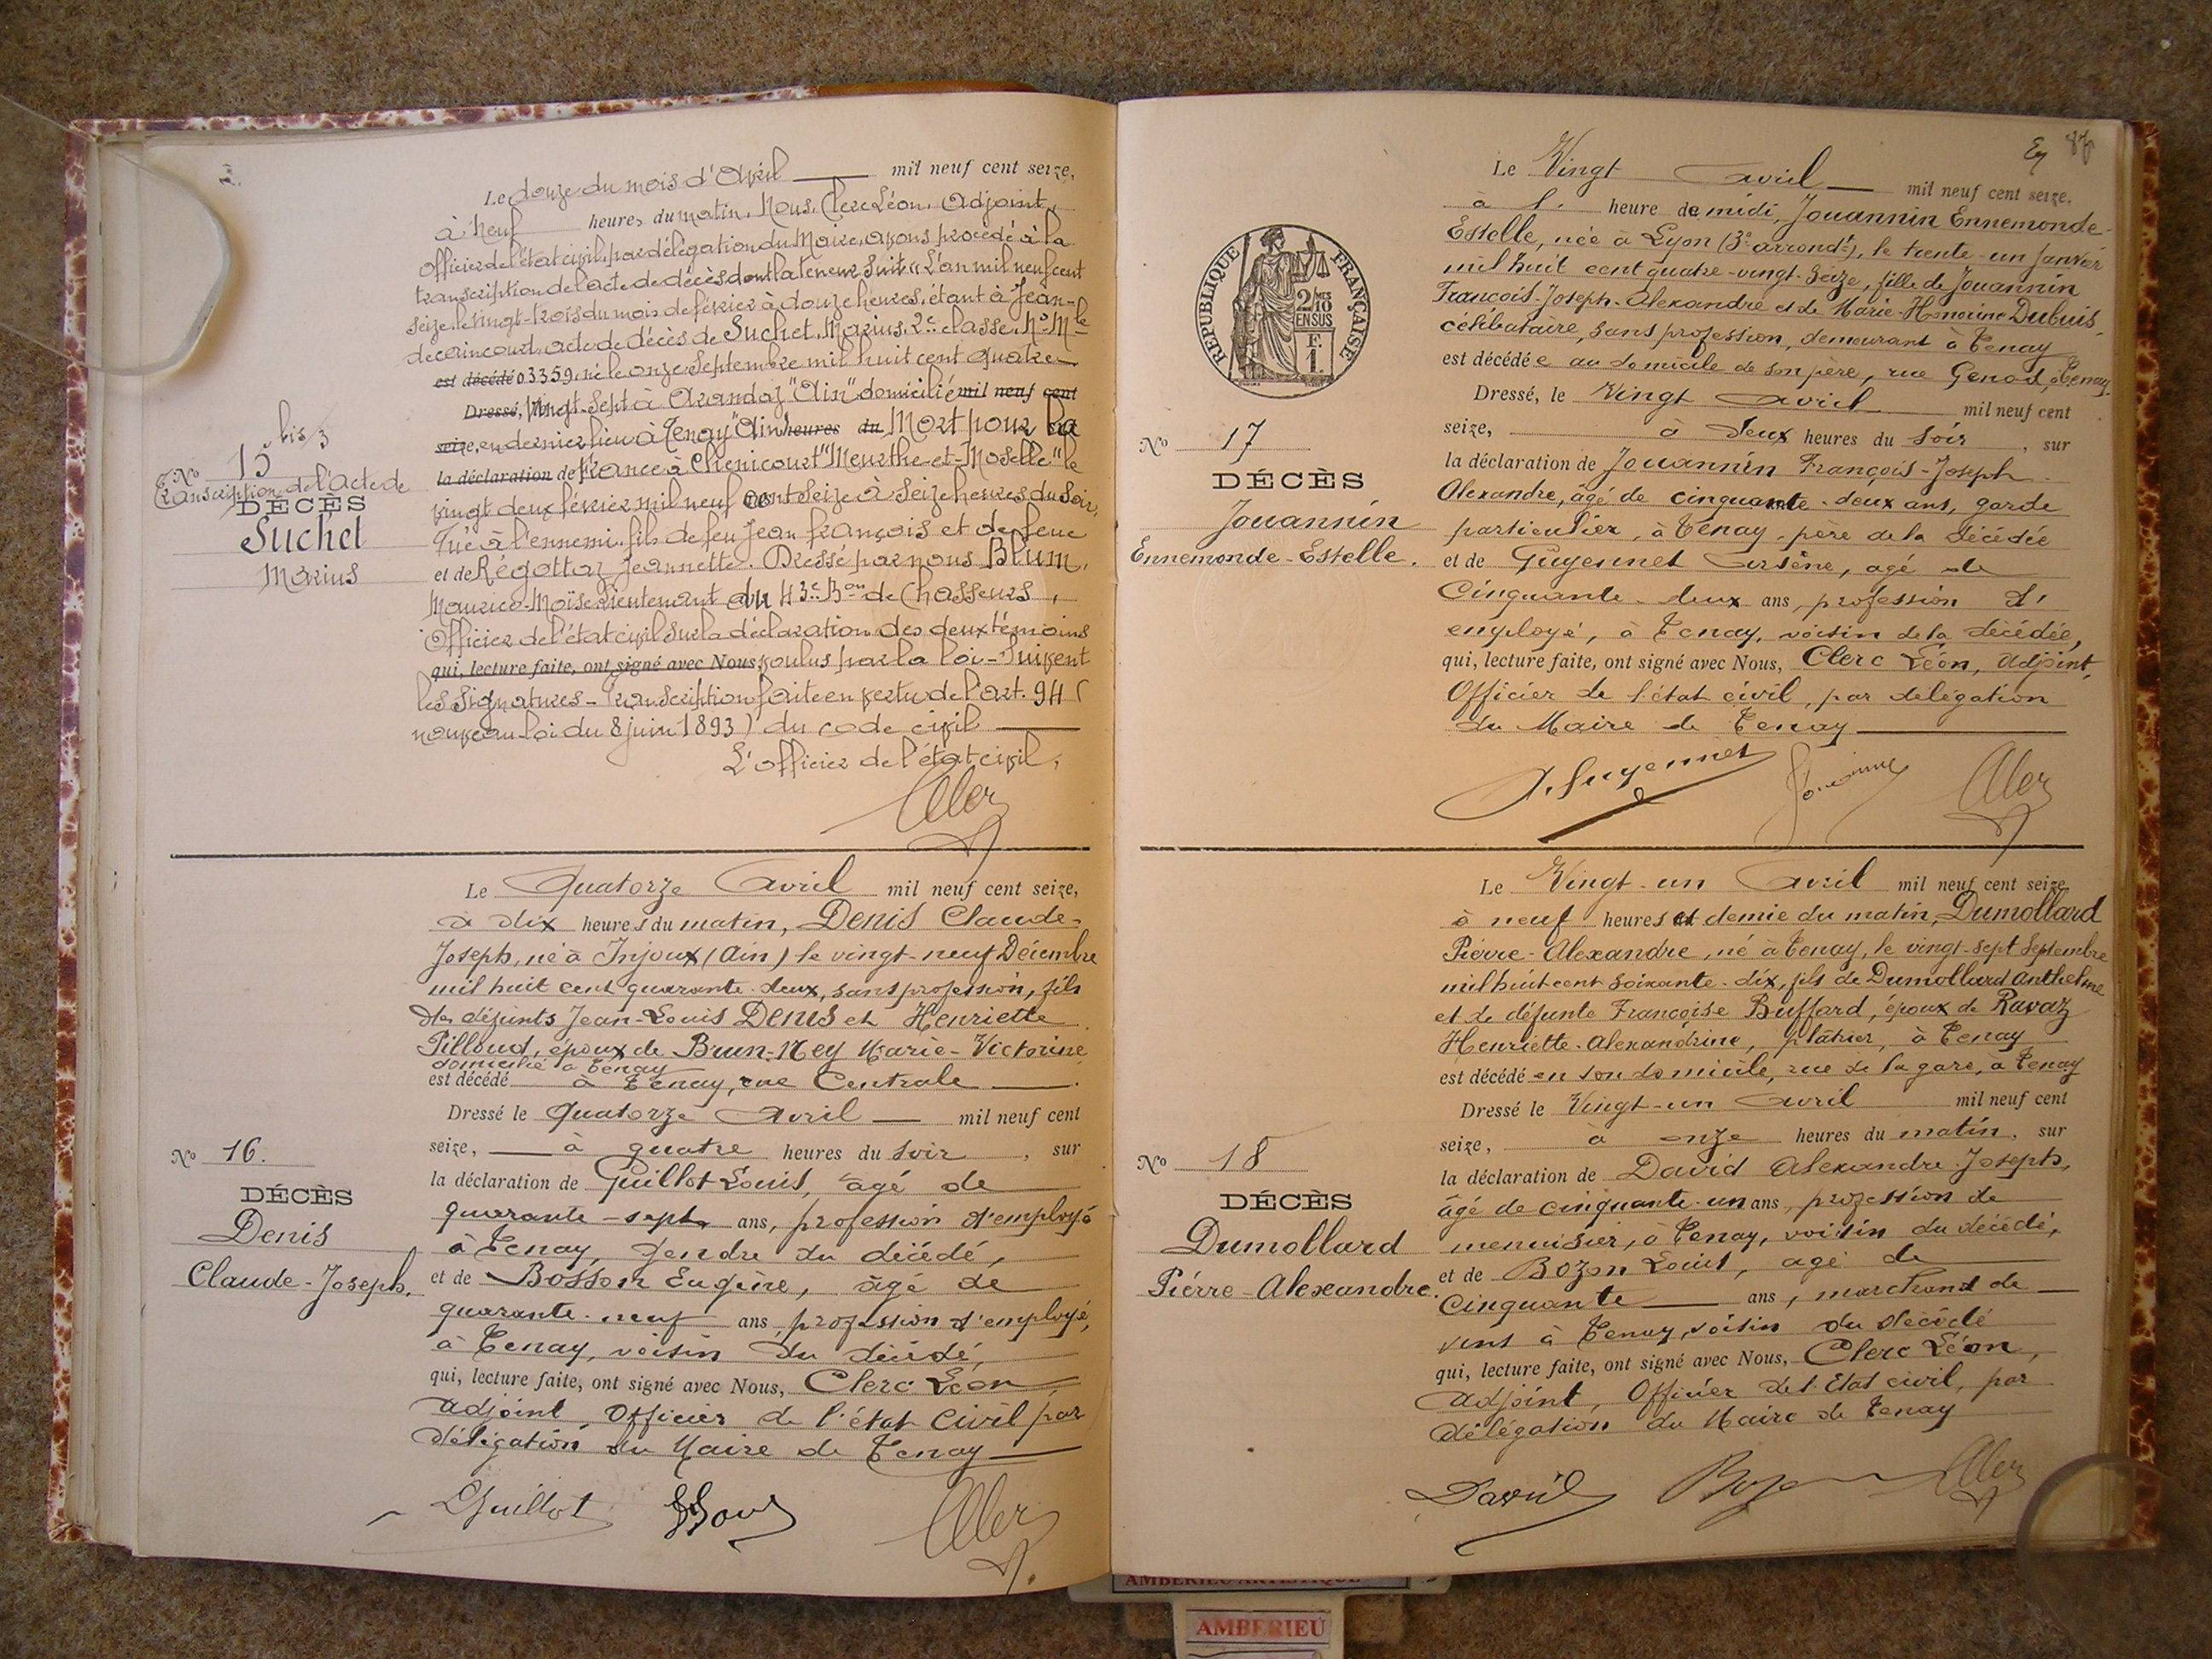 Le douze du mois d'Avril mil neuf cent seize,
à neuf heures du matin, Nous, Clerc Léon, Adjoint,
Officier de l'état civil, par délégation du Maire, avons procédé à la
transcription de l'acte de décès dont la teneur suit: "L'an mil neuf cent
seize, le vingt-trois du mois de février à douze heures, étant à Jean-
decaincourt, acte de décès de Suchet Marius, 2e classe, No Mle
est décédé 03359, né le onze Septembre mil huit cent quatre-
Dressé, vingt-sept à Arandaz "Ain" domicilié mil neuf cent
seize, en dernier lieu à Tenay "Ain" heures du Mort pour la
la déclaration de France à Chenicourt "Meurthe-et-Moselle" le
vingt deux février mil neuf cent seize à seize heures du soir,
Tué à l'ennemi, fils de feu Jean François et de feue
et de Régottaz Jeannette. Dressé par nous Blum,
Maurice-Moïse lieutenant au 43e Bon de Chasseurs,
Officier de l'état civil sur la déclaration des deux témoins
qui, lecture faite, ont signé avec Nous, voulus par la loi - Suivent
les signatures - Transcription faite en vertu de l'art. 94 (
nouveau loi du 8 juin 1893) du code civil
L'officier de l'état civil,
bis/3
No 15
Transcription de l'Acte de
DÉCÈS
Suchet
Marius
Le Quatorze Avril mil neuf cent seize,
à dix heures du matin, Denis Claude-
Joseph, né à Injoux (Ain) le vingt-neuf Décembre
mil huit cent quarante-deux, sans profession, fils
des défunts Jean-Louis Denis et Henriette
Pilloud, époux de Brun-Ney Marie-Victorine
domicilié à Tenay
est décédé à Tenay, rue Centrale
Dressé le Quatorze Avril mil neuf cent
seize, à quatre heures du soir, sur
la déclaration de Guillot Louis, âgé de
quarante-sept ans, profession d'employé
à Tenay, gendre du décédé,
et de Bosson Eugène, âgé de
quarante-neuf ans, profession d'employé,
à Tenay, voisin du décédé,
qui, lecture faite, ont signé avec Nous, Clerc Léon
adjoint, Officier de l'état civil par
délégation du Maire de Tenay
LGuillot
No 16.
DÉCÈS
Denis
Claude-Joseph.
87
RÉPUBLIQUE FRANÇAISE
2/10mes
EN SUS
F.
1.
Le Vingt avril mil neuf cent seize.
à 1. heure de midi, Jouannin Ennemonde-
Estelle, née à Lyon (3e arrondt), le trente-un janvier
mil huit cent quatre-vingt-seize, fille de Jouannin
François-Joseph-Alexandre et de Marie-Honorine Dubuis,
célibataire, sans profession, demeurant à Tenay
est décédée au domicile de son père, rue Genod, à Tenay.
Dressé, le Vingt avril mil neuf cent
seize, à deux heures du soir, sur
la déclaration de Jouannin François-Joseph
Alexandre, âgé de cinquante-deux ans, garde
particulier, à Tenay, père de la décédée
et de Guyennet Arsène, agé de
Cinquante-deux ans, profession d'
employé, à Tenay, voisin de la décédée,
qui, lecture faite, ont signé avec Nous, Clerc Léon, Adjoint,
Officier de l'état civil, par délégation
du Maire de Tenay
A. Guyennet
No 17
DÉCÈS
Jouannin
Ennemonde-Estelle.
Le Vingt-un Avril mil neuf cent seize
à neuf heures et demie du matin, Dumollard
Pierre-Alexandre, né à Tenay, le vingt-sept Septembre
mil huit cent soixante-dix, fils de Dumollard Anthelme
et de défunte Françoise Buffard, époux de Ravaz
Henriette-Alexandrine, plâtrier, à Tenay
est décédé en son domicile, rue de la gare, à Tenay
Dressé le Vingt-un avril mil neuf cent
seize, à onze heures du matin, sur
la déclaration de David Alexandre Joseph,
âgé de cinquante-un ans, profession de
menuisier, à Tenay, voisin du décédé,
et de Bozon Louis, agé de
Cinquante ans, marchand de
vins à Tenay, voisin du décédé
qui, lecture faite, ont signé avec Nous, Clerc Léon,
adjoint, Officier de l'Etat civil, par
délégation du Maire de Tenay
David
No 18
DÉCÈS
Dumollard
Pierre-Alexandre.
AMBERIEU ARTISTIQUE
AMBERIEU